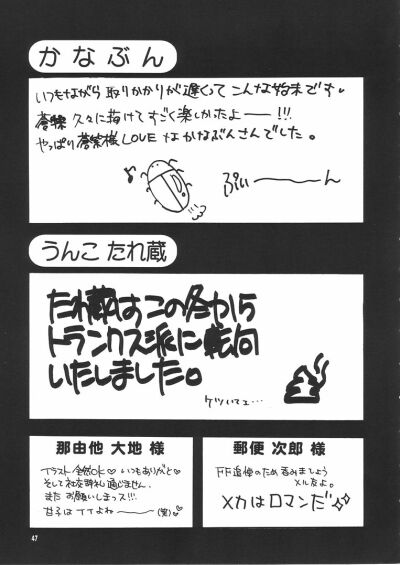 かなぶん
いつもながら取りかかりが遅くってこんな始末です。
蒼紫久々に描けてすごく楽しかったよー!!!
やっぱり蒼紫様LOVEなかなぶんさんでした。
ぷいーーん
うんこたれ蔵
たれ蔵はこの冬から
トランクス派に転向
いたしました。
ケツいてェ…
那由他 大地 様
イラスト全然OK♡いつもありがと♡
そして社交辞礼通じません。
また お願いしまっス!!!
甘子はイイよねー(笑)
郵便 次郎 様
FF追悼のため 呑みましょう
メル友よ。
メカはロマンだ
47